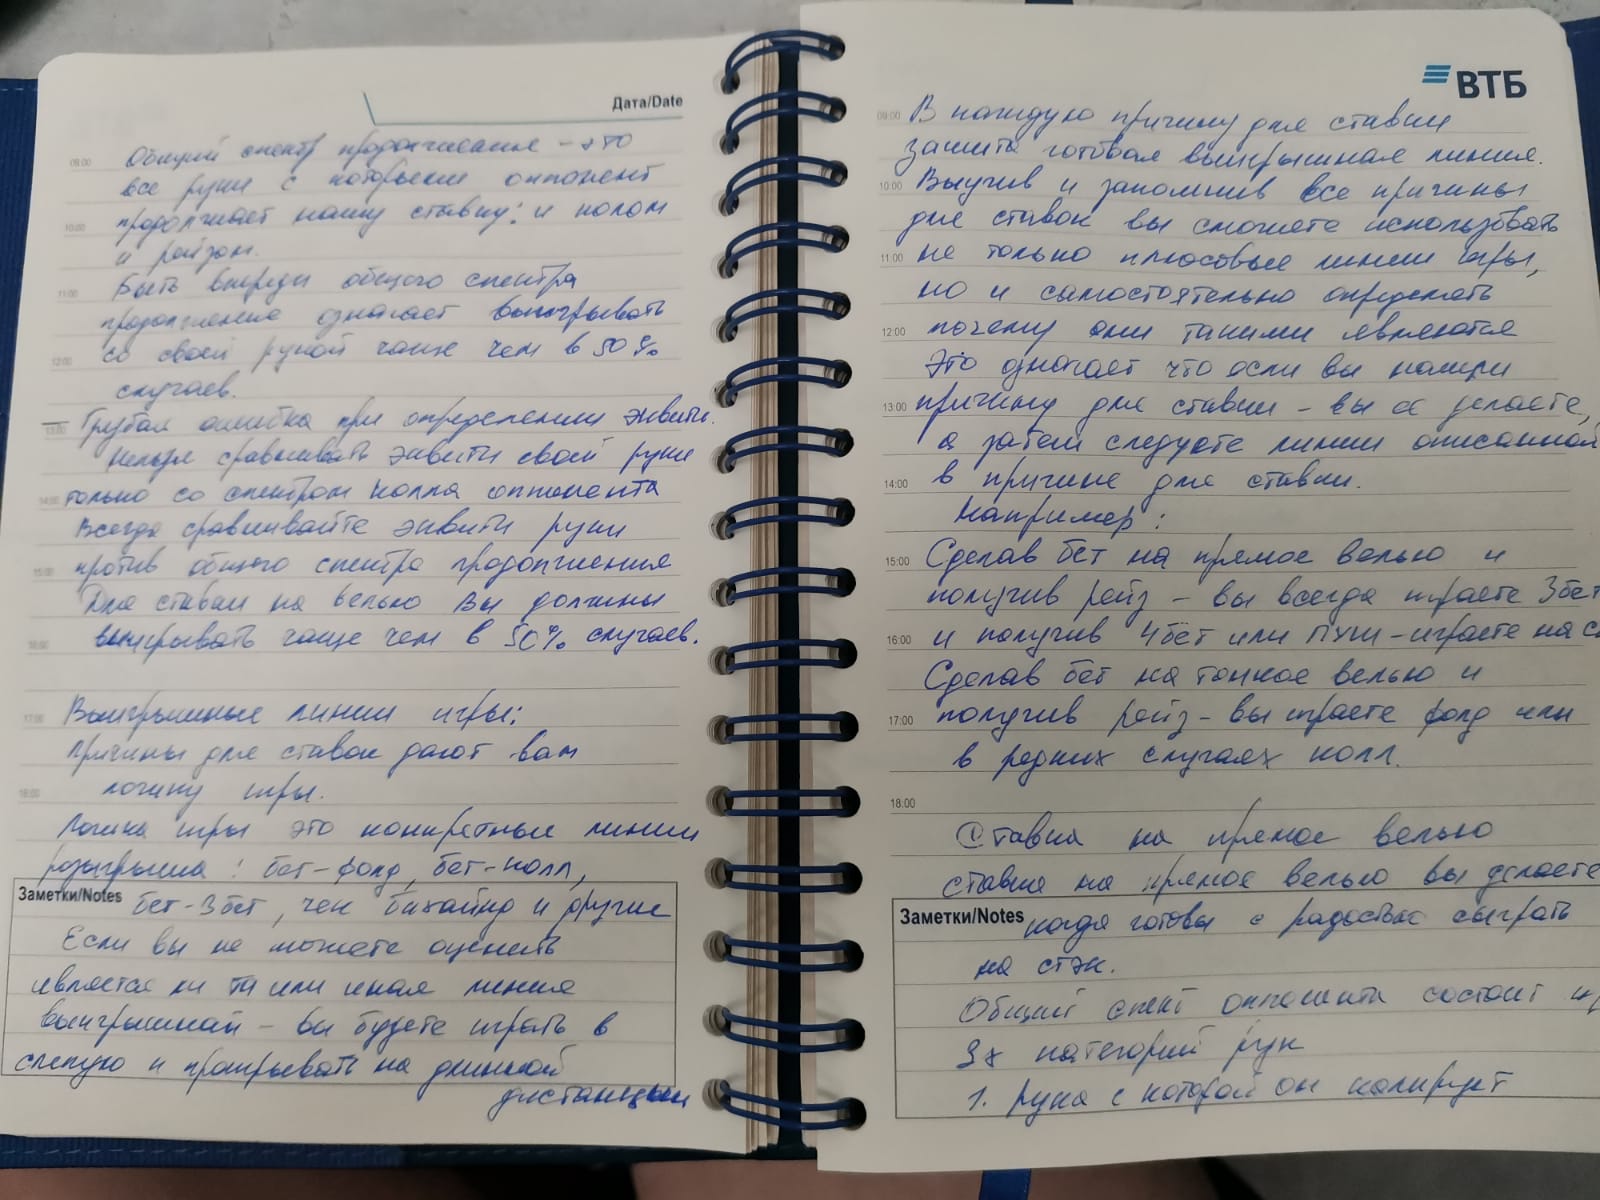 Дата/Date
09:00
Общий спектр продолжения - это
все руки с которыми оппонент
продолжает нашу ставку: и колом
10:00
и рейзом.
Быть впереди общего спектра
11:00
продолжение означает выигрывать
со своей рукой чаще чем в 50%
12:00
случаев.
Грубая ошибка при определении эквити.
13:00
нельзя сравнивать эквити своей руки
только со спектром колла оппонента
14:00
Всегда сравнивайте эквити руки
против общего спектра продолжения
15:00
Для ставки на велью Вы должны
выигрывать чаще чем в 50% случаев.
16:00
Выигрышные линии игры:
17:00
Причины для ставок дают вам
логику игры.
18:00
Логика игры это конкретные линии
розыгрыша: бет-фолд, бет-колл,
Заметки/Notes
бет-3бет, чек бихайнд и другие
Если вы не можете оценить
является ли та или иная линия
выигрышной - вы будете играть в
слепую и проигрывать на длинной
дистанции
ВТБ
09:00
В каждую причину для ставки
зашита готовая выигрышная линия.
10:00
Выучив и запомнив все причины
для ставок вы сможете использовать
11:00
не только плюсовые линии игры,
но и самостоятельно определять
12:00
почему они такими являются
Это означает что если вы нашли
13:00
причину для ставки - вы ее делаете,
а затем следуете линии описанной
14:00
в причине для ставки.
Например:
15:00
Сделав бет на прямое велью и
получив рейз - вы всегда играете 3бет
16:00
и получив 4бет или ПУШ - играете на
Сделав бет на тонкое велью и
17:00
получив рейз - вы играете фолд или
в редких случаях колл.
18:00
Ставка на прямое велью
ставка на прямое велью вы делаете
Заметки/Notes
когда готовы с радостью сыграть
на стэк.
Общий спект оппонента состоит
3х категорий рук
1. рука с которой он колирует